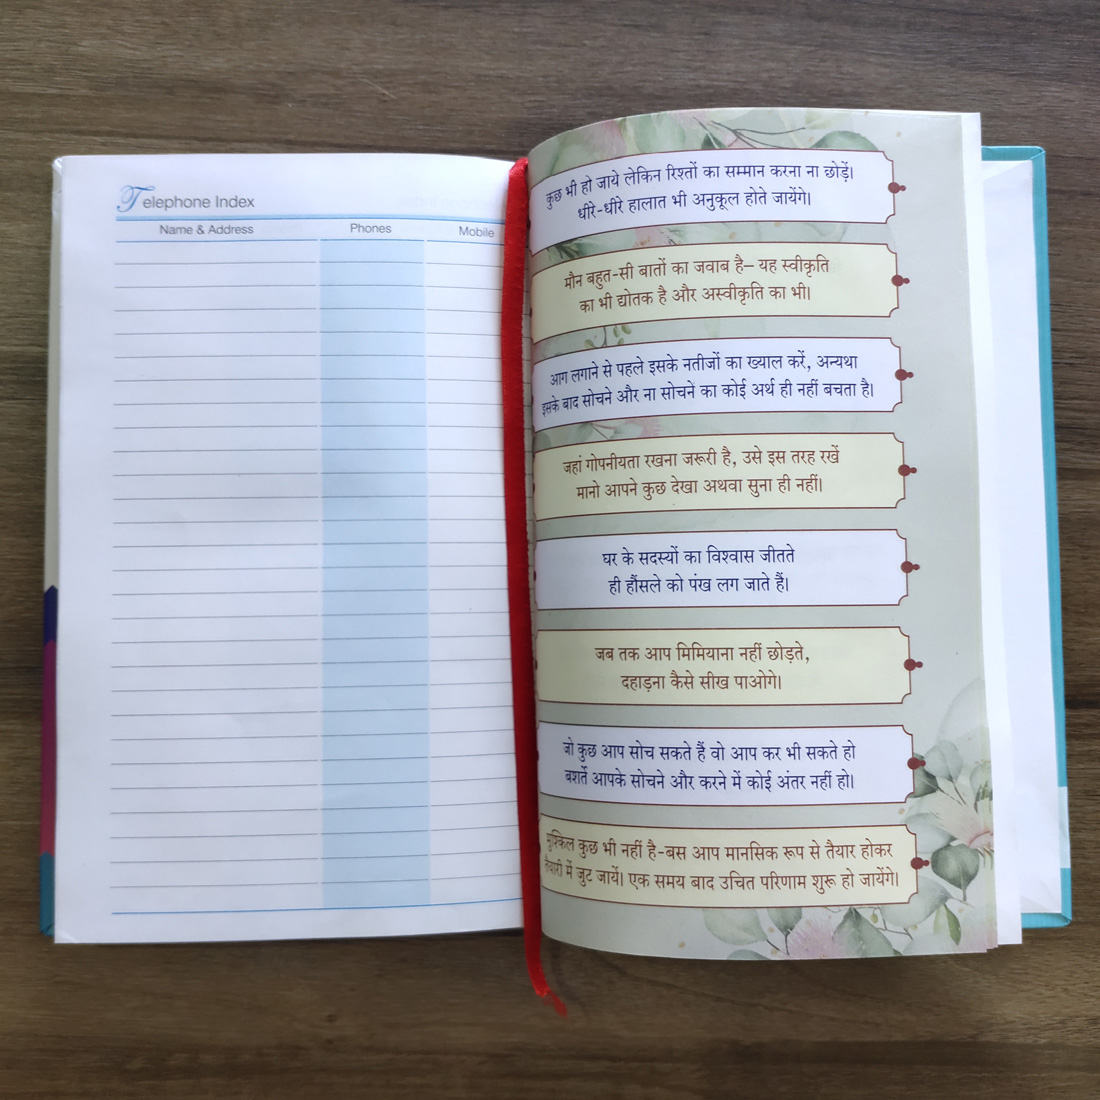 Telephone Index
Name & Address Phones Mobile
कुछ भी हो जाये लेकिन रिश्तों का सम्मान करना ना छोड़ें।
धीरे-धीरे हालात भी अनुकूल होते जायेंगे।
मौन बहुत-सी बातों का जवाब है– यह स्वीकृति
का भी द्योतक है और अस्वीकृति का भी।
आग लगाने से पहले इसके नतीजों का ख्याल करें, अन्यथा
इसके बाद सोचने और ना सोचने का कोई अर्थ ही नहीं बचता है।
जहां गोपनीयता रखना जरूरी है, उसे इस तरह रखें
मानो आपने कुछ देखा अथवा सुना ही नहीं।
घर के सदस्यों का विश्वास जीतते
ही हौंसले को पंख लग जाते हैं।
जब तक आप मिमियाना नहीं छोड़ते,
दहाड़ना कैसे सीख पाओगे।
जो कुछ आप सोच सकते हैं वो आप कर भी सकते हो
बशर्ते आपके सोचने और करने में कोई अंतर नहीं हो।
मुश्किल कुछ भी नहीं है-बस आप मानसिक रूप से तैयार होकर
तैयारी में जुट जायें। एक समय बाद उचित परिणाम शुरू हो जायेंगे।